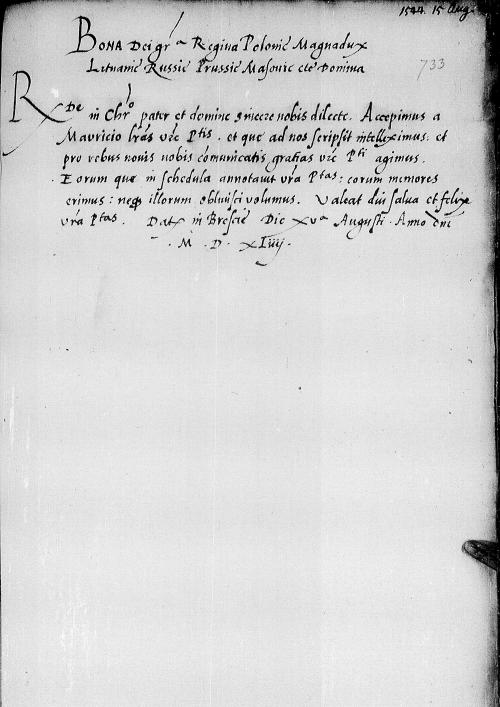 1544. 15 Aug.
BONA Dei gr̃a Regina Polonie Magnadux
Lituanie Russie Prussie Masovie etc Domina
733
Rde in Chr̃o pater et domine sincere nobis dilecte. Accepimus a
Mauricio lr̃as vr̃e Ptis. et que ad nos scripsit intelleximus: et
pro rebus novis nobis cõmunicatis gratias vr̃e Pti agimus.
Eorum que in schedula annotavit vr̃a Ptas: eorum memores
erimus: neq illorum oblivisci volumus. Valeat diu salva et felix
vr̃a Ptas. Datx in Brescie Die xva Augusti. Anno dñi
. M . D . xliiij .